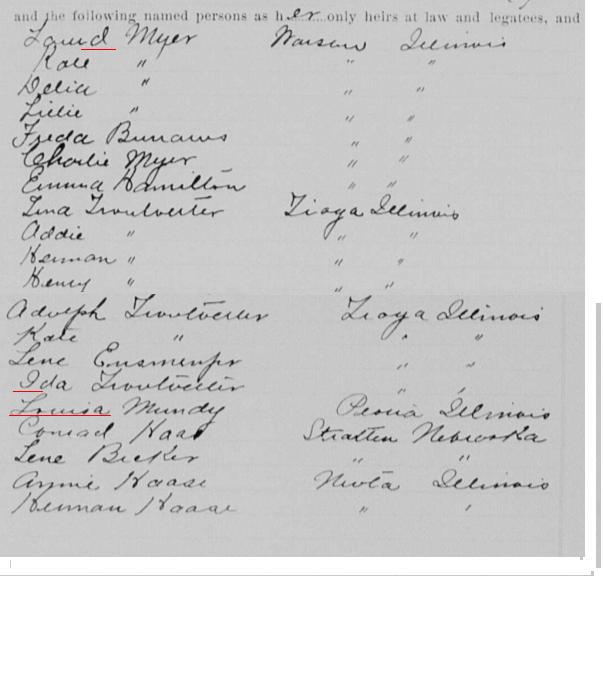 and the following named persons as her only heirs at law and legatees, and
Myer Warsaw Illinois
Kate " " "
Delia " " "
Lillie " " "
Freda " "
Charlie Myer " "
Emma Hamilton " "
Lena Troutvetter Tioga Illinois
Addie " " "
Herman " " "
Henry " " "
Adolph Troutvetter Tioga Illinois
Kate " " "
Lene " "
Ida Troutvetter " "
Louisa Mundy Peoria Illinois
Conrad Haas Stratton Nebraska
Lene Becker " "
Annie Haase Niota Illinois
Herman Haase " "